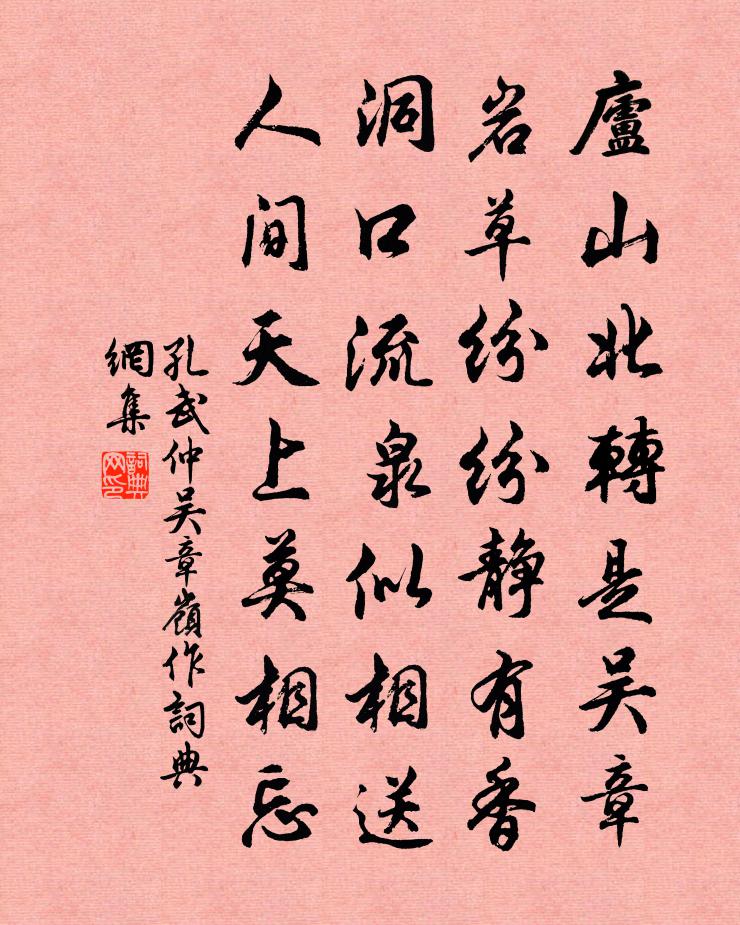 廬山北轉是吴章
岩草紛紛静有香
洞口流泉似相送
人间天上莫相忘
孔武仲吴章嶺作詞典
網集
詞典
网印